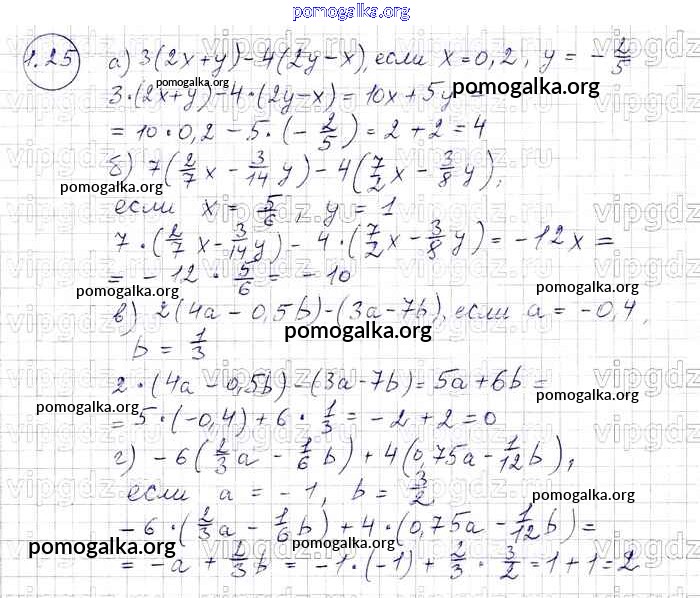 pomogalka.org
1.25 а) 3(2x+y)-4(2y-x), если x=0,2, y = -2/5
pomogalka.org
3·(2x+y)-4·(2y-x) = 10x+5y =
pomogalka.org
= 10·0,2 - 5·(-2/5) = 2+2 = 4
б) 7(2/7 x - 3/14 y) - 4(7/2 x - 3/8 y),
pomogalka.org
pomogalka.org
если x = 5/6, y = 1
7·(2/7 x - 3/14 y) - 4·(7/2 x - 3/8 y) = -12x =
pomogalka.org
= -12·5/6 = -10
pomogalka.org
pomogalka.org
в) 2(4a-0,5b)-(3a-7b), если a = -0,4,
pomogalka.org
b = 1/3
2·(4a-0,5b)-(3a-7b) = 5a+6b =
pomogalka.org
pomogalka.org
= 5·(-0,4)+6·1/3 = -2+2=0
г) -6(2/3 a - 1/6 b) + 4(0,75a - 1/12 b),
pomogalka.org
если a = -1, b = 3/2
pomogalka.org
-6·(2/3 a - 1/6 b) + 4·(0,75a - 1/12 b) =
pomogalka.org
pomogalka.org
pomogalka.org
= -a + 2/3 b = -1·(-1) + 2/3·3/2 = 1+1=2